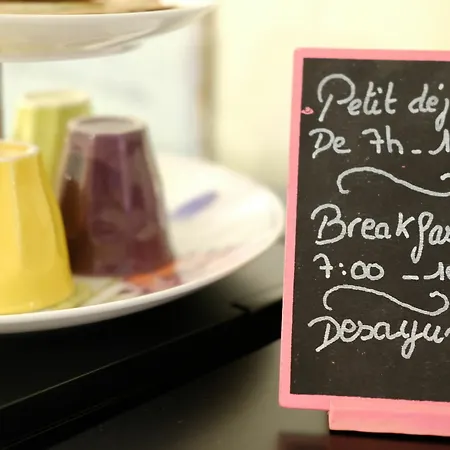 Petit déj
De 7h - 1
Breakfas
7:00 - 1
Desayu